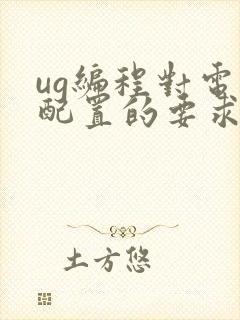 ug编程對電
配置的要求
土方悠